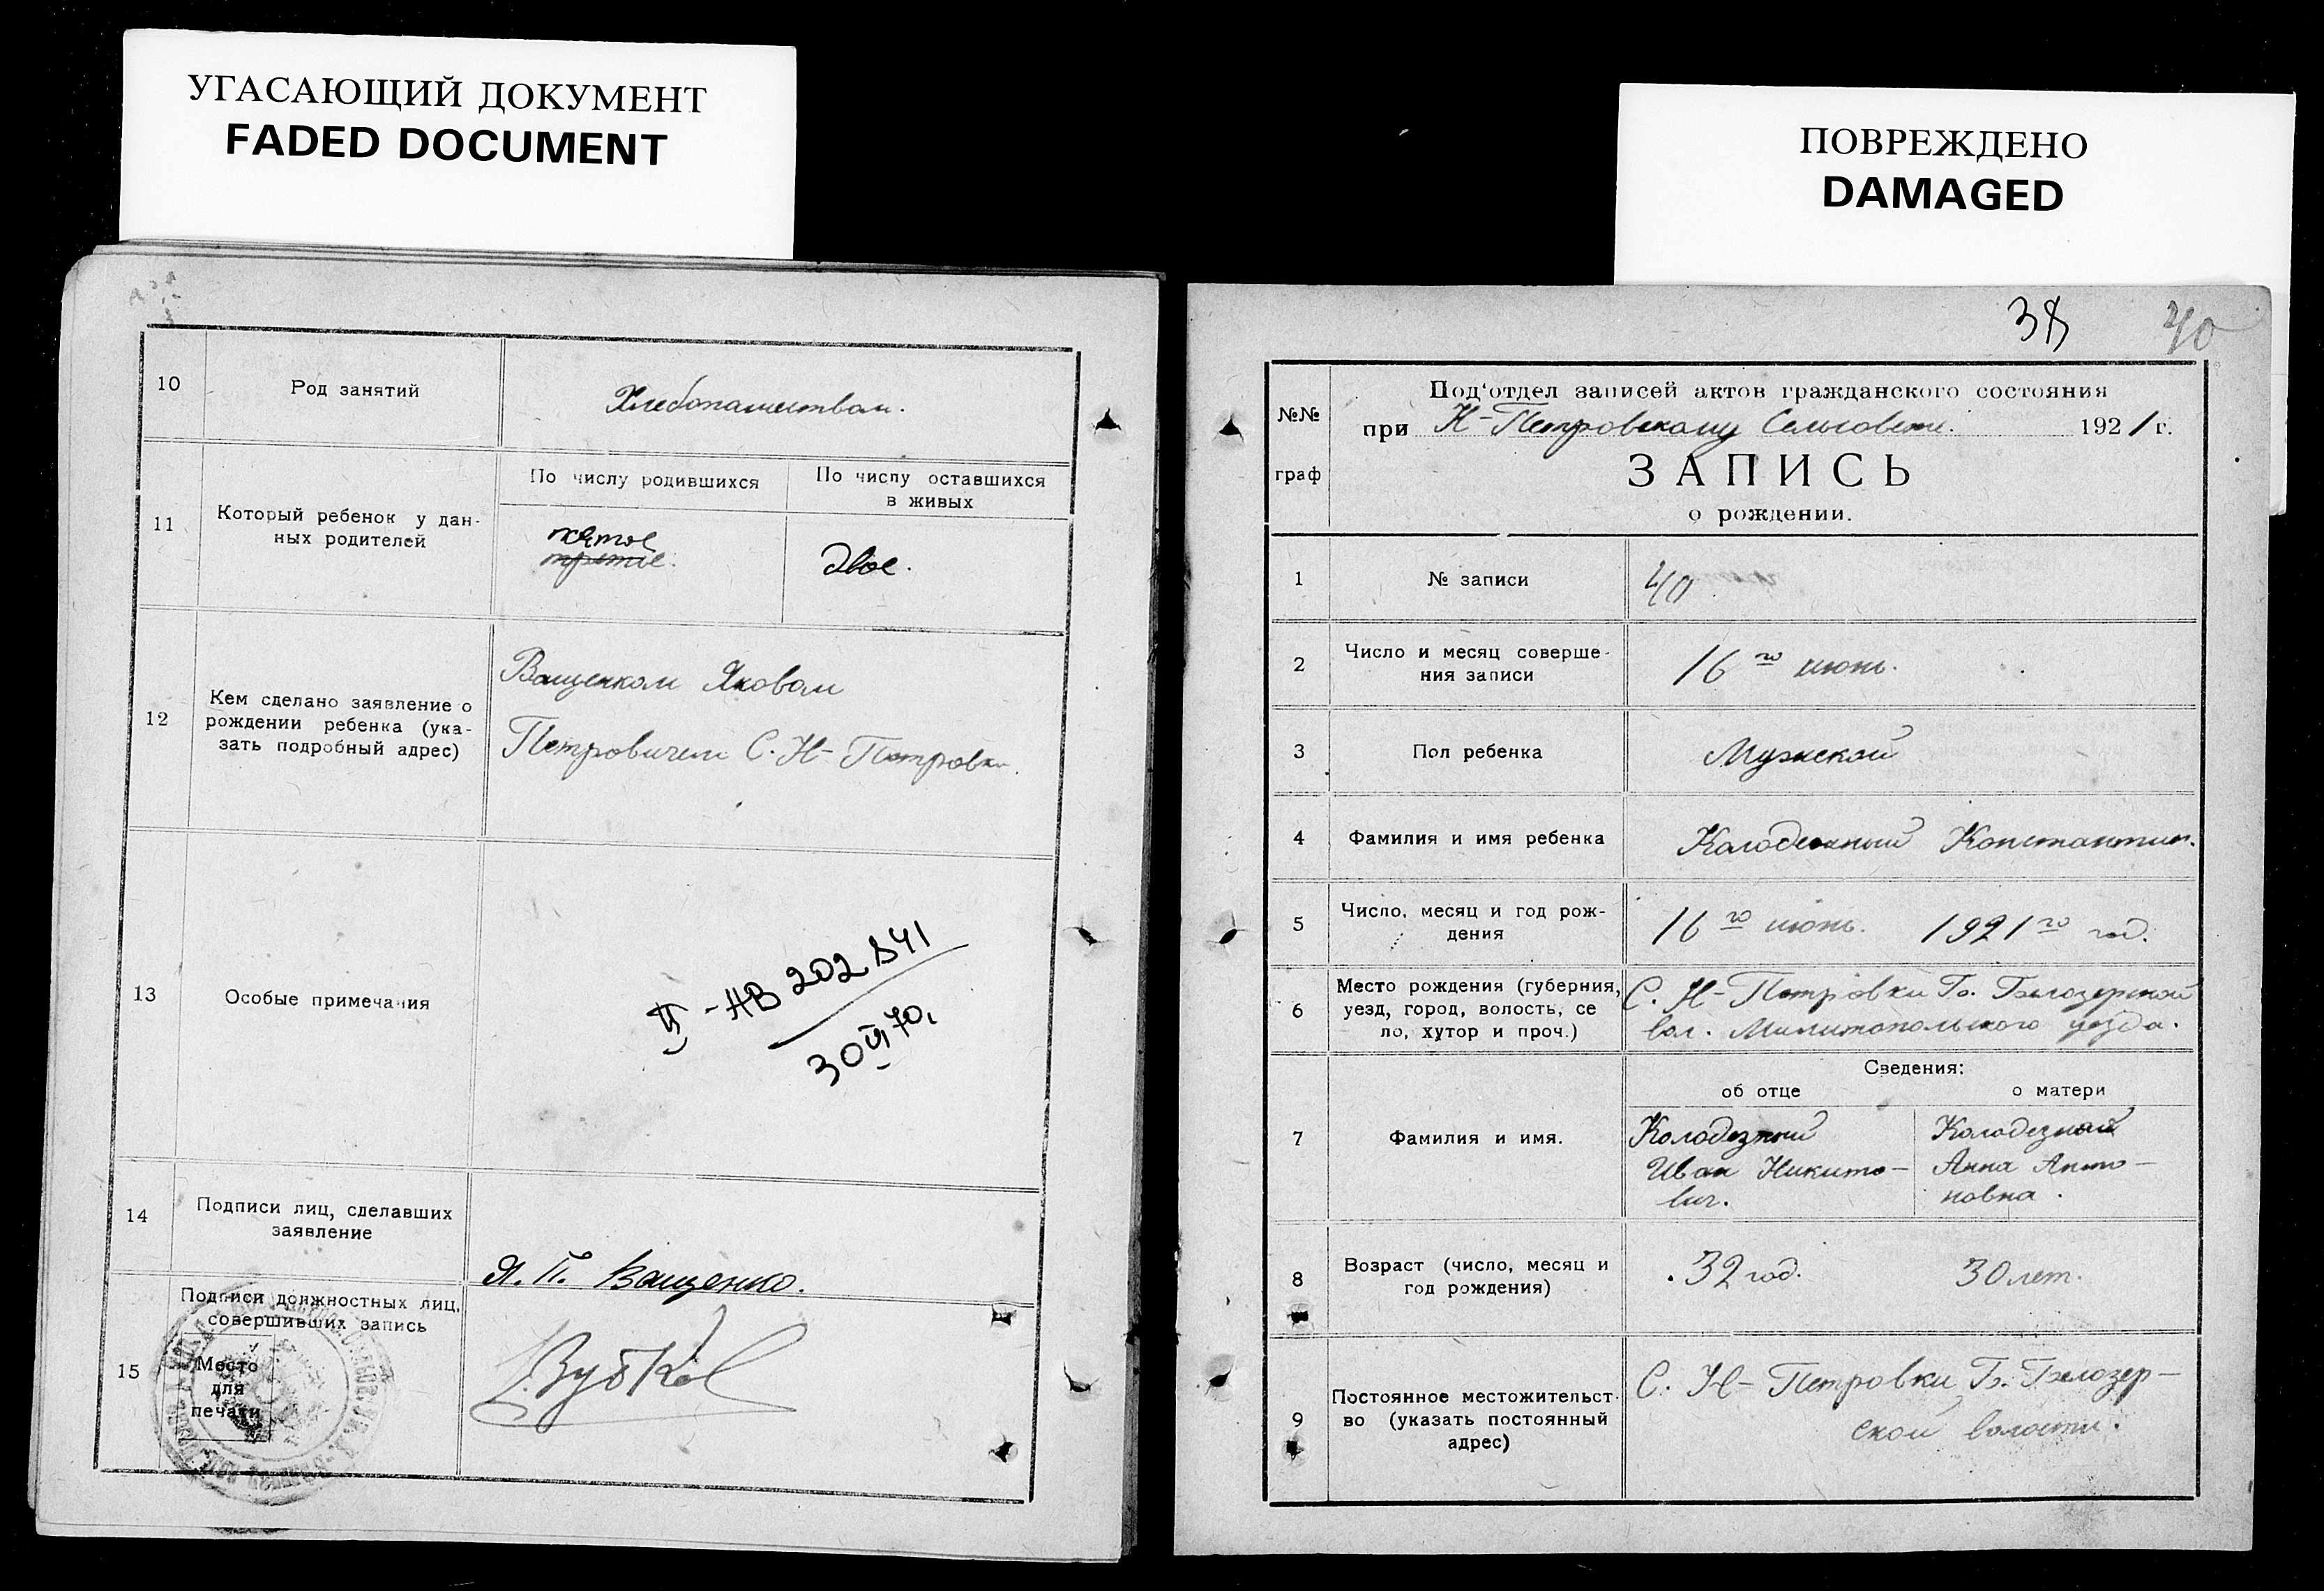 УГАСАЮЩИЙ ДОКУМЕНТ
FADED DOCUMENT
10
Род занятий
Хлебопашеством.
11
Который ребенок у дан-
ных родителей
По числу родившихся
По числу оставшихся
в живых
пятое
третие.
двое.
12
Кем сделано заявление о
рождении ребенка (ука-
зать подробный адрес)
Ващенком Яковом
Петровичем С. Н-Петровки.
13
Особые примечания
II-АВ 202841
30 VI 70.
14
Подписи лиц, сделавших
заявление
Я. П. Ващенко.
15
Подписи должностных лиц,
совершивших запись
Место
для
печати
Зубков
ПОВРЕЖДЕНО
DAMAGED
38
40
№№
граф
Под'отдел записей актов гражданского состояния
при Н-Петровскому Сельсовете. 1921 г.
ЗАПИСЬ
о рождении.
1
№ записи
40
2
Число и месяц соверше-
ния записи
16го июнь.
3
Пол ребенка
Мужской
4
Фамилия и имя ребенка
Колодезный Константин.
5
Число, месяц и год рож-
дения
16го июнь. 1921го год.
6
Место рождения (губерния,
уезд, город, волость, се
ло, хутор и проч.)
С. Н-Петровки Б. Белозерской
вол. Милитопольского уезда.
Сведения:
об отце
о матери
7
Фамилия и имя.
Колодезный
Иван Никито-
вич.
Колодезная
Анна Анто-
новна.
8
Возраст (число, месяц и
год рождения)
32 год.
30 лет.
9
Постоянное местожительст-
во (указать постоянный
адрес)
С. Н-Петровки Б. Белозер-
ской волости.